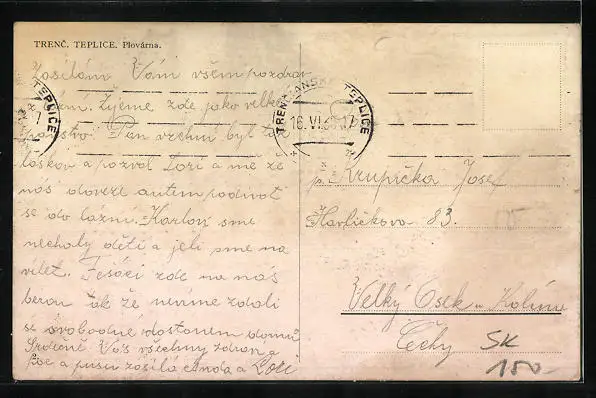 TRENČ. TEPLICE. Plovárna.
Zasílám Vám všem pozdrav
z lázní. Žijeme zde jako velké
panstvo. Pan vrchní byl tak
laskav a pozval Lori a mě že
nás doveze autem podívat
se do lázní. Karlou sme
nechaly děti a jeli sme na
výlet. Fešáci zde na nás
berou tak že nevíme zdali
se svobodné dostanem domů
Srdečně Vás všechny zdraví a
a pusu zasílá a Lori
TRENČIANSKE TEPLICE
16. VI. 17
TEPLICE
7
p. Krupička Josef
Havlíčkova 83.
Velký Osek u Kolína
Čechy SK
150-